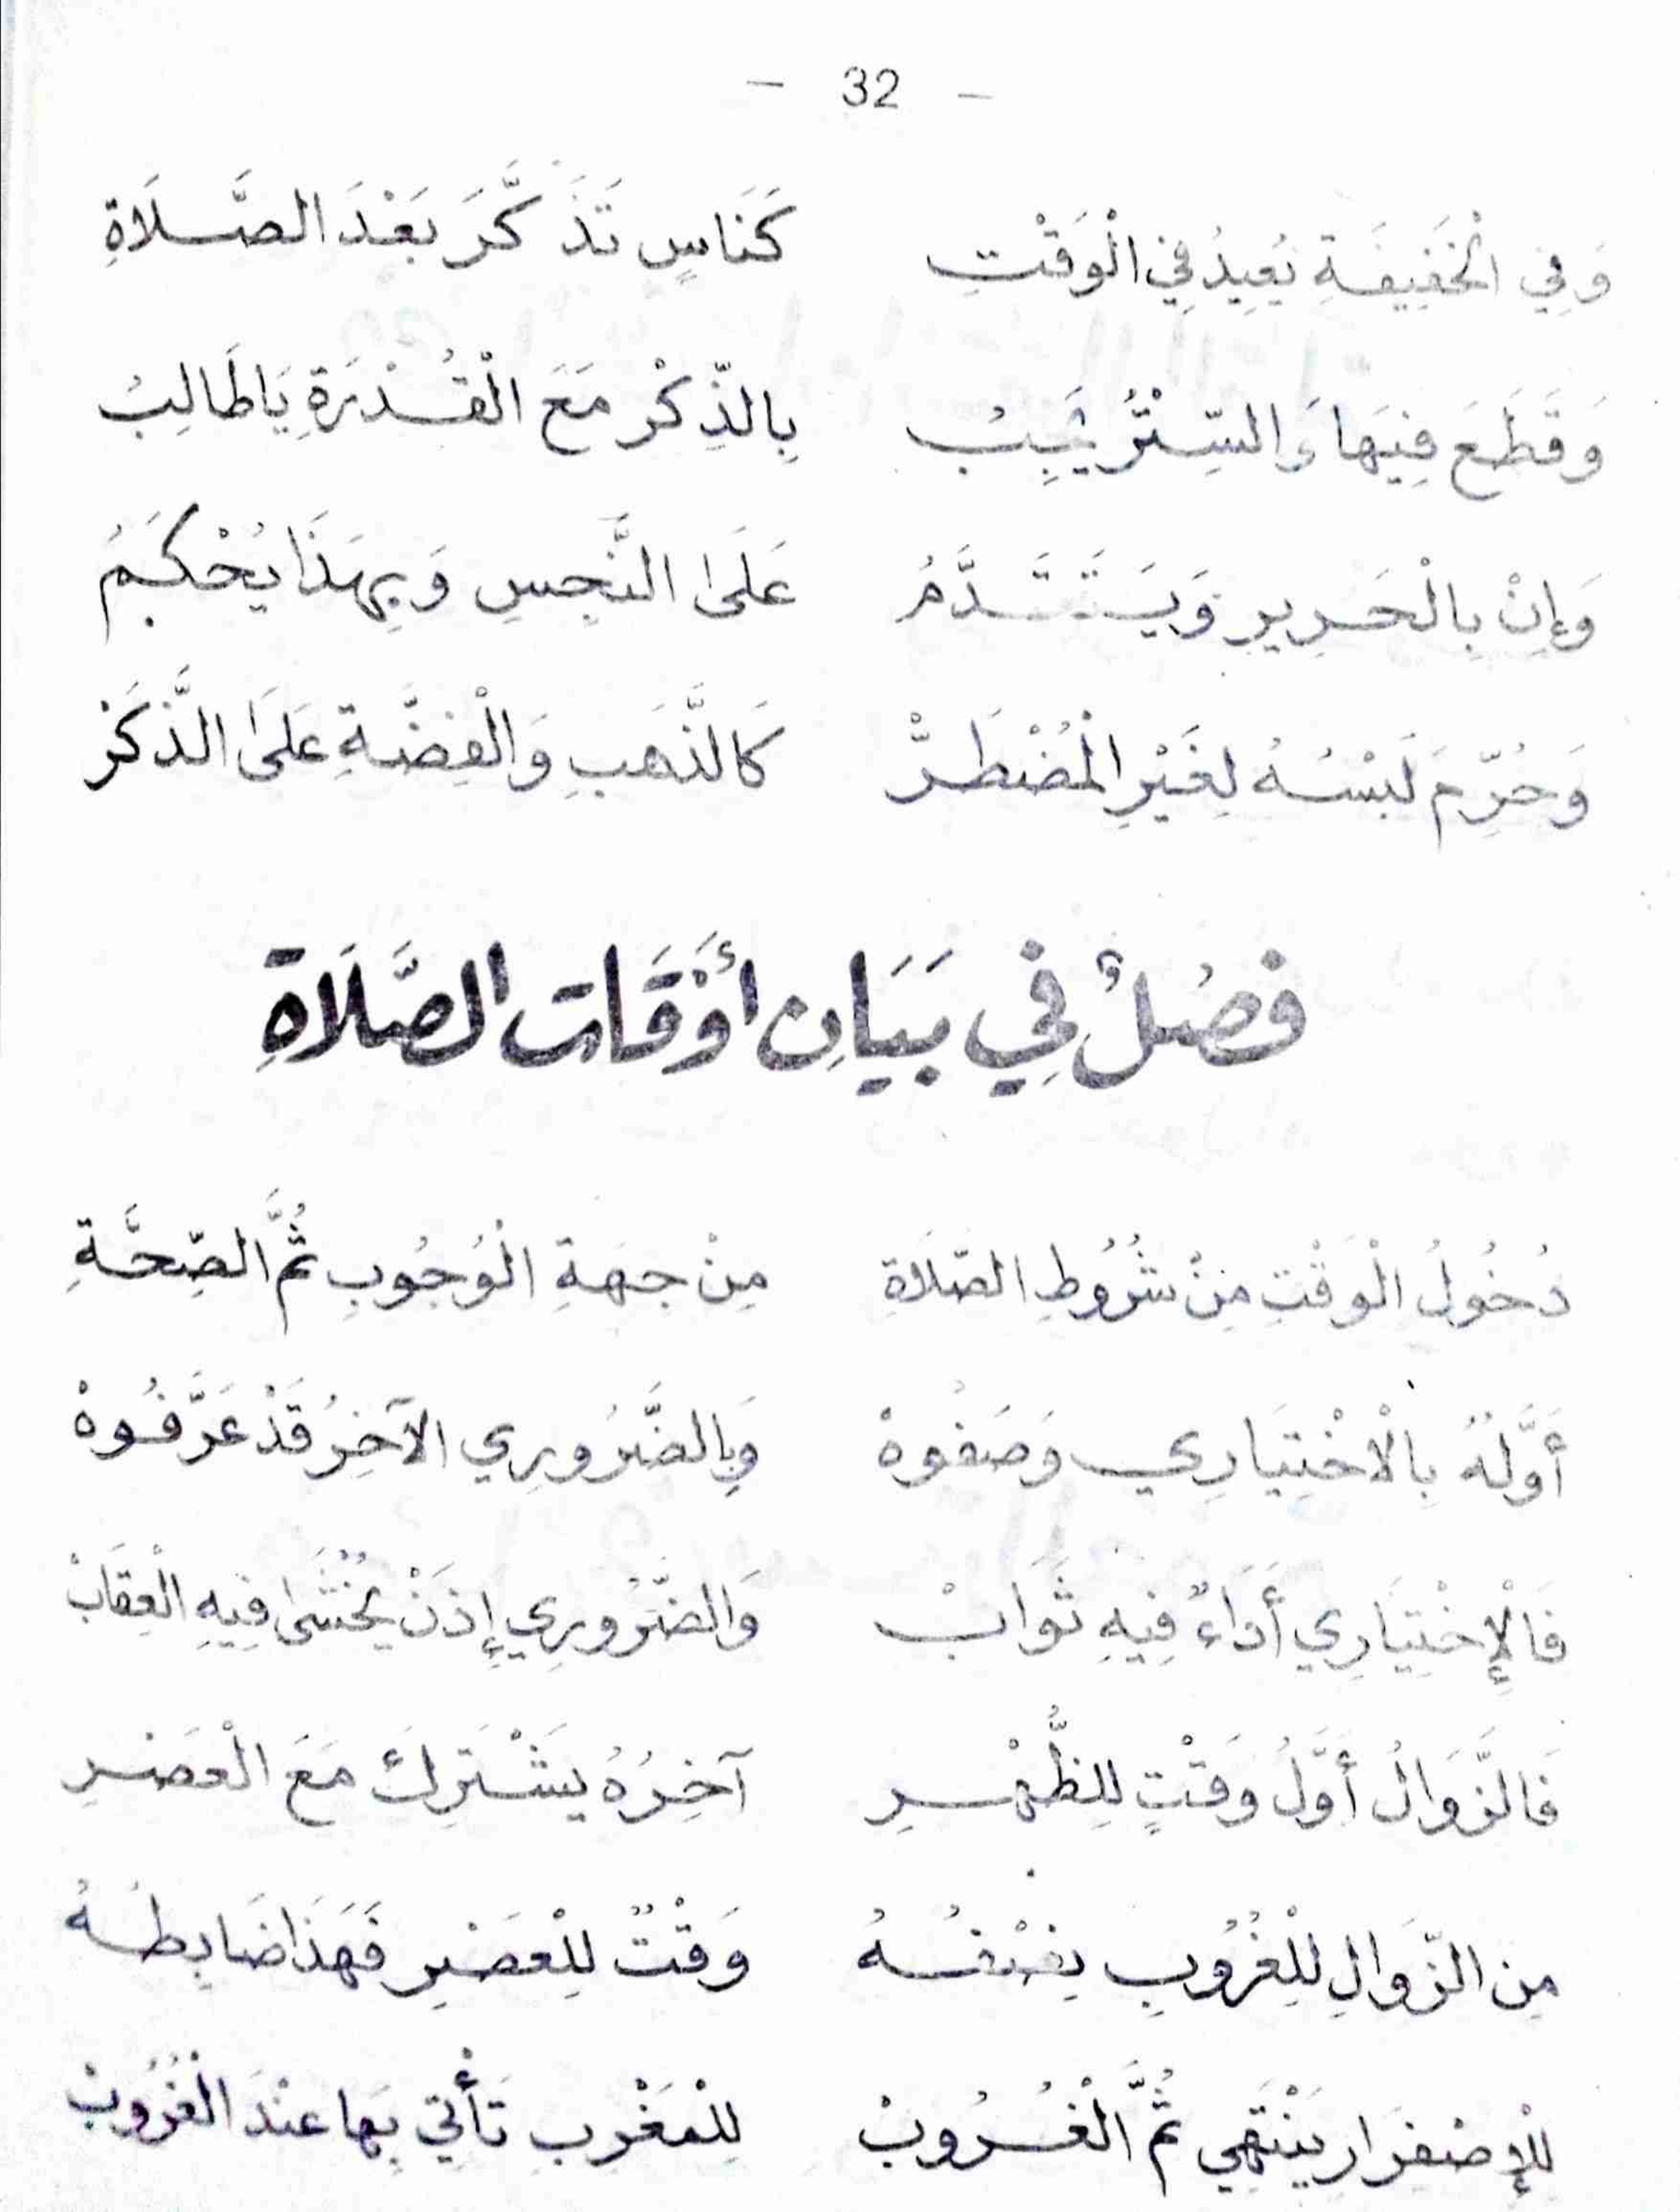 - 32 -
وَفِي الْخَفِيفَةِ يُعِيدُ فِي الْوَقْتِ كَنَاسٍ تَذَكَّرَ بَعْدَ الصَّلَاةِ
وَقَطَعَ فِيهَا وَالسِّتْرُ يَجِبُ بِالذِّكْرِ مَعَ الْقُدْرَةِ يَا طَالِبُ
وَإِنْ بِالْحَرِيرِ وَيَتَقَدَّمُ عَلَى النَّجِسِ وَبِهَذَا يُحْكَمُ
وَحُرِّمَ لَبْسُهُ لِغَيْرِ الْمُضْطَرْ كَالذَّهَبِ وَالْفِضَّةِ عَلَى الذَّكَرْ
فَصْلٌ فِي بَيَانِ أَوْقَاتِ الصَّلَاةِ
دُخُولُ الْوَقْتِ مِنْ شُرُوطِ الصَّلَاةِ مِنْ جِهَةِ الْوُجُوبِ ثُمَّ الصِّحَّةِ
أَوَّلُهُ بِالْاخْتِيَارِي وَصَفُوهْ وَبِالضَّرُورِي الآخِرُ قَدْ عَرَّفُوهْ
فَالْإِخْتِيَارِي أَدَاءٌ فِيهِ ثَوَابْ وَالضَّرُورِي إِذَنْ يُخْشَى فِيهِ الْعِقَابْ
فَالزَّوَالُ أَوَّلُ وَقْتٍ لِلظُّهْرِ آخِرُهُ يَشْتَرِكُ مَعَ الْعَصْرِ
مِن الزَّوَالِ لِلْغُرُوبِ نِصْفُهُ وَقْتٌ لِلْعَصْرِ فَهَذَا ضَابِطُهُ
لِلْإِصْفِرَارِ يَنْتَهِي ثُمَّ الْغُرُوبْ لِلْمَغْرِبِ تَأْتِي بِهَا عِنْدَ الْغُرُوبْ